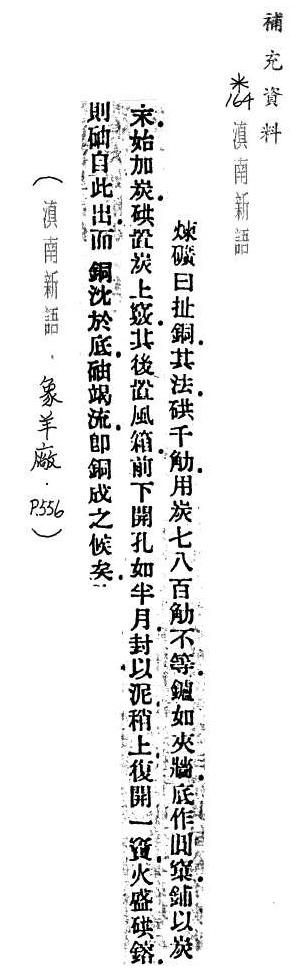 補充資料
*164 滇南新語
煉礦曰扯銅其法硔千觔用炭七八百觔不等鑪如夾牆底作凹窠鋪以炭
末始加炭硔置炭上竅其後置風箱前下開孔如半月封以泥稍上復開一竇火盛硔鎔
則䂳自此出而銅沈於底䂳竭流即銅成之候矣
(滇南新語．象羊廠．P.556)